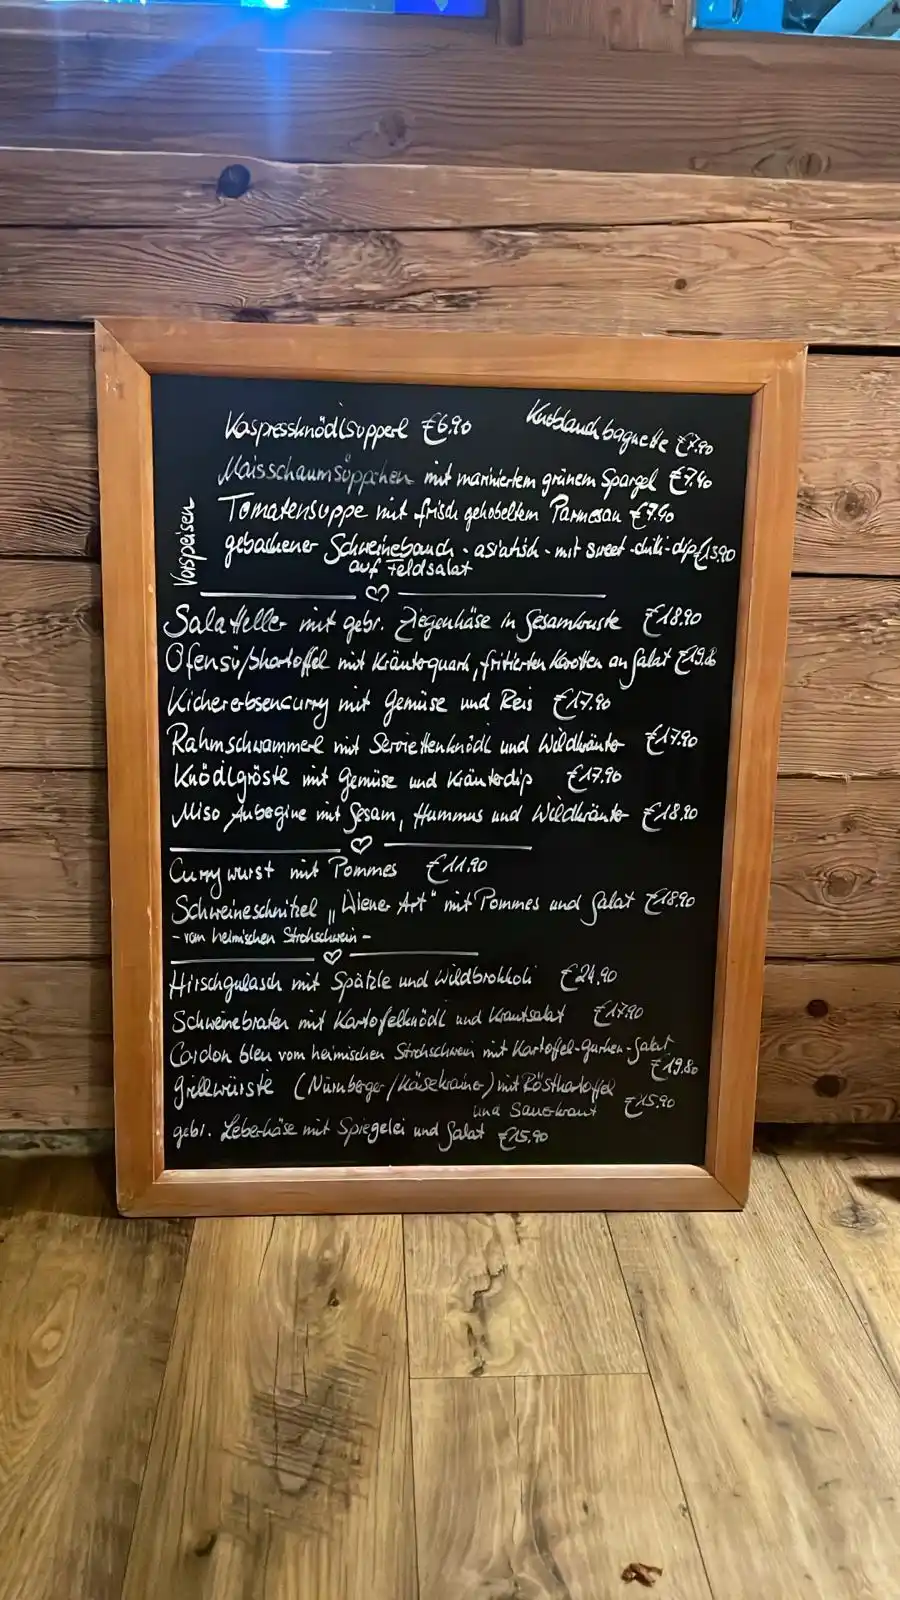 Kaspressknödlsupperl €6.90
Knoblauchbaguette €7.90
Maisschaumsüppchen mit mariniertem grünem Spargel €7.90
Vorspeisen
Tomatensuppe mit frisch gehobeltem Parmesan €7.90
gebackener Schweinebauch - asiatisch - mit sweet-chili-dip €13.90
auf Feldsalat
Salatteller mit gebr. Ziegenkäse in Sesamkruste €18.90
Ofensüßkartoffel mit Kräuterquark, fritierten Karotten an Salat
Kichererbsencurry mit Gemüse und Reis €17.90
Rahmschwammerl mit Serviettenknödl und Wildkräuter €17.90
Knödlgröstl mit Gemüse und Kräuterdip €17.90
Miso Aubegine mit Sesam, Hummus und Wildkräuter €18.90
Currywurst mit Pommes €11.90
Schweineschnitzel „Wiener Art" mit Pommes und Salat €18.90
- vom heimischen Strohschwein -
Hirschgulasch mit Spätzle und Wildbrokkoli €24.90
Schweinebraten mit Kartoffelknödl und Krautsalat €17.90
Cordon bleu vom heimischen Strohschwein mit Kartoffel-Gurken-Salat
€19.80
Grillwürstl (Nürnberger/Käsekrainer) mit Röstkartoffel
und Sauerkraut €15.90
gebr. Leberkäse mit Spiegelei und Salat €15.90